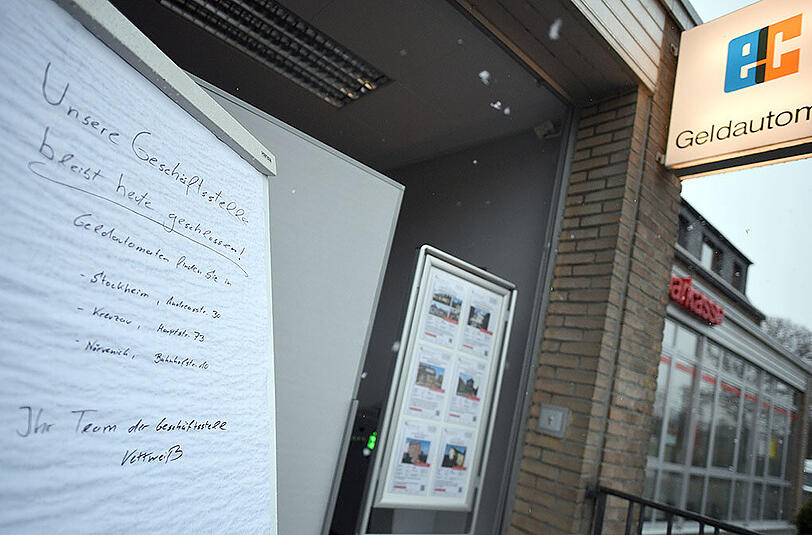 Unsere Geschäftsstelle
bleibt heute geschlossen!
Geldautomaten finden Sie in
- Stockheim, Andreasstr. 30
- Kreuzau, Hauptstr. 73
- Nörvenich, Bahnhofstr. 10
Ihr Team der Geschäftsstelle
Vettweiß
ec
Geldautom
arkasse